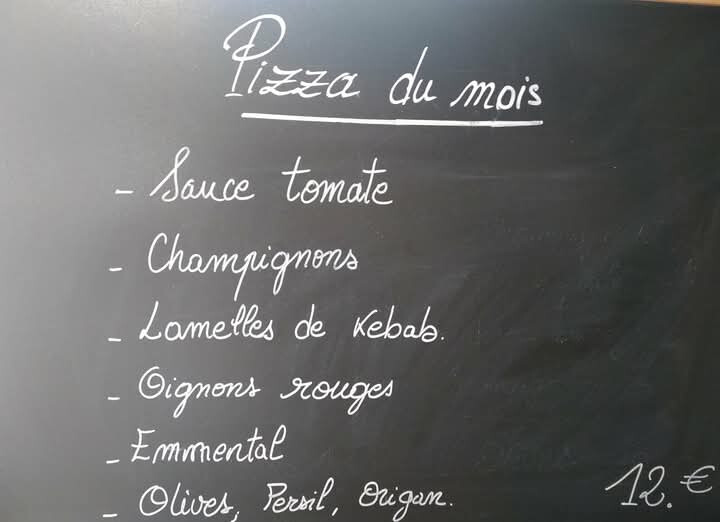 Pizza du mois
- Sauce tomate
- Champignons
- Lamelles de Kebab.
- Oignons rouges
- Emmental
- Olives, Persil, Origan.
12.€